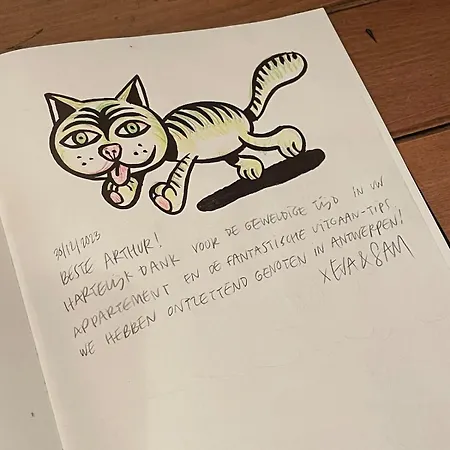 30/12/2023
BESTE ARTHUR!
HARTELIJK DANK VOOR DE GEWELDIGE TIJD IN UW
APPARTEMENT EN DE FANTASTISCHE UITGAAN-TIPS
WE HEBBEN ONTZETTEND GENOTEN IN ANTWERPEN!
X EVA & SAM